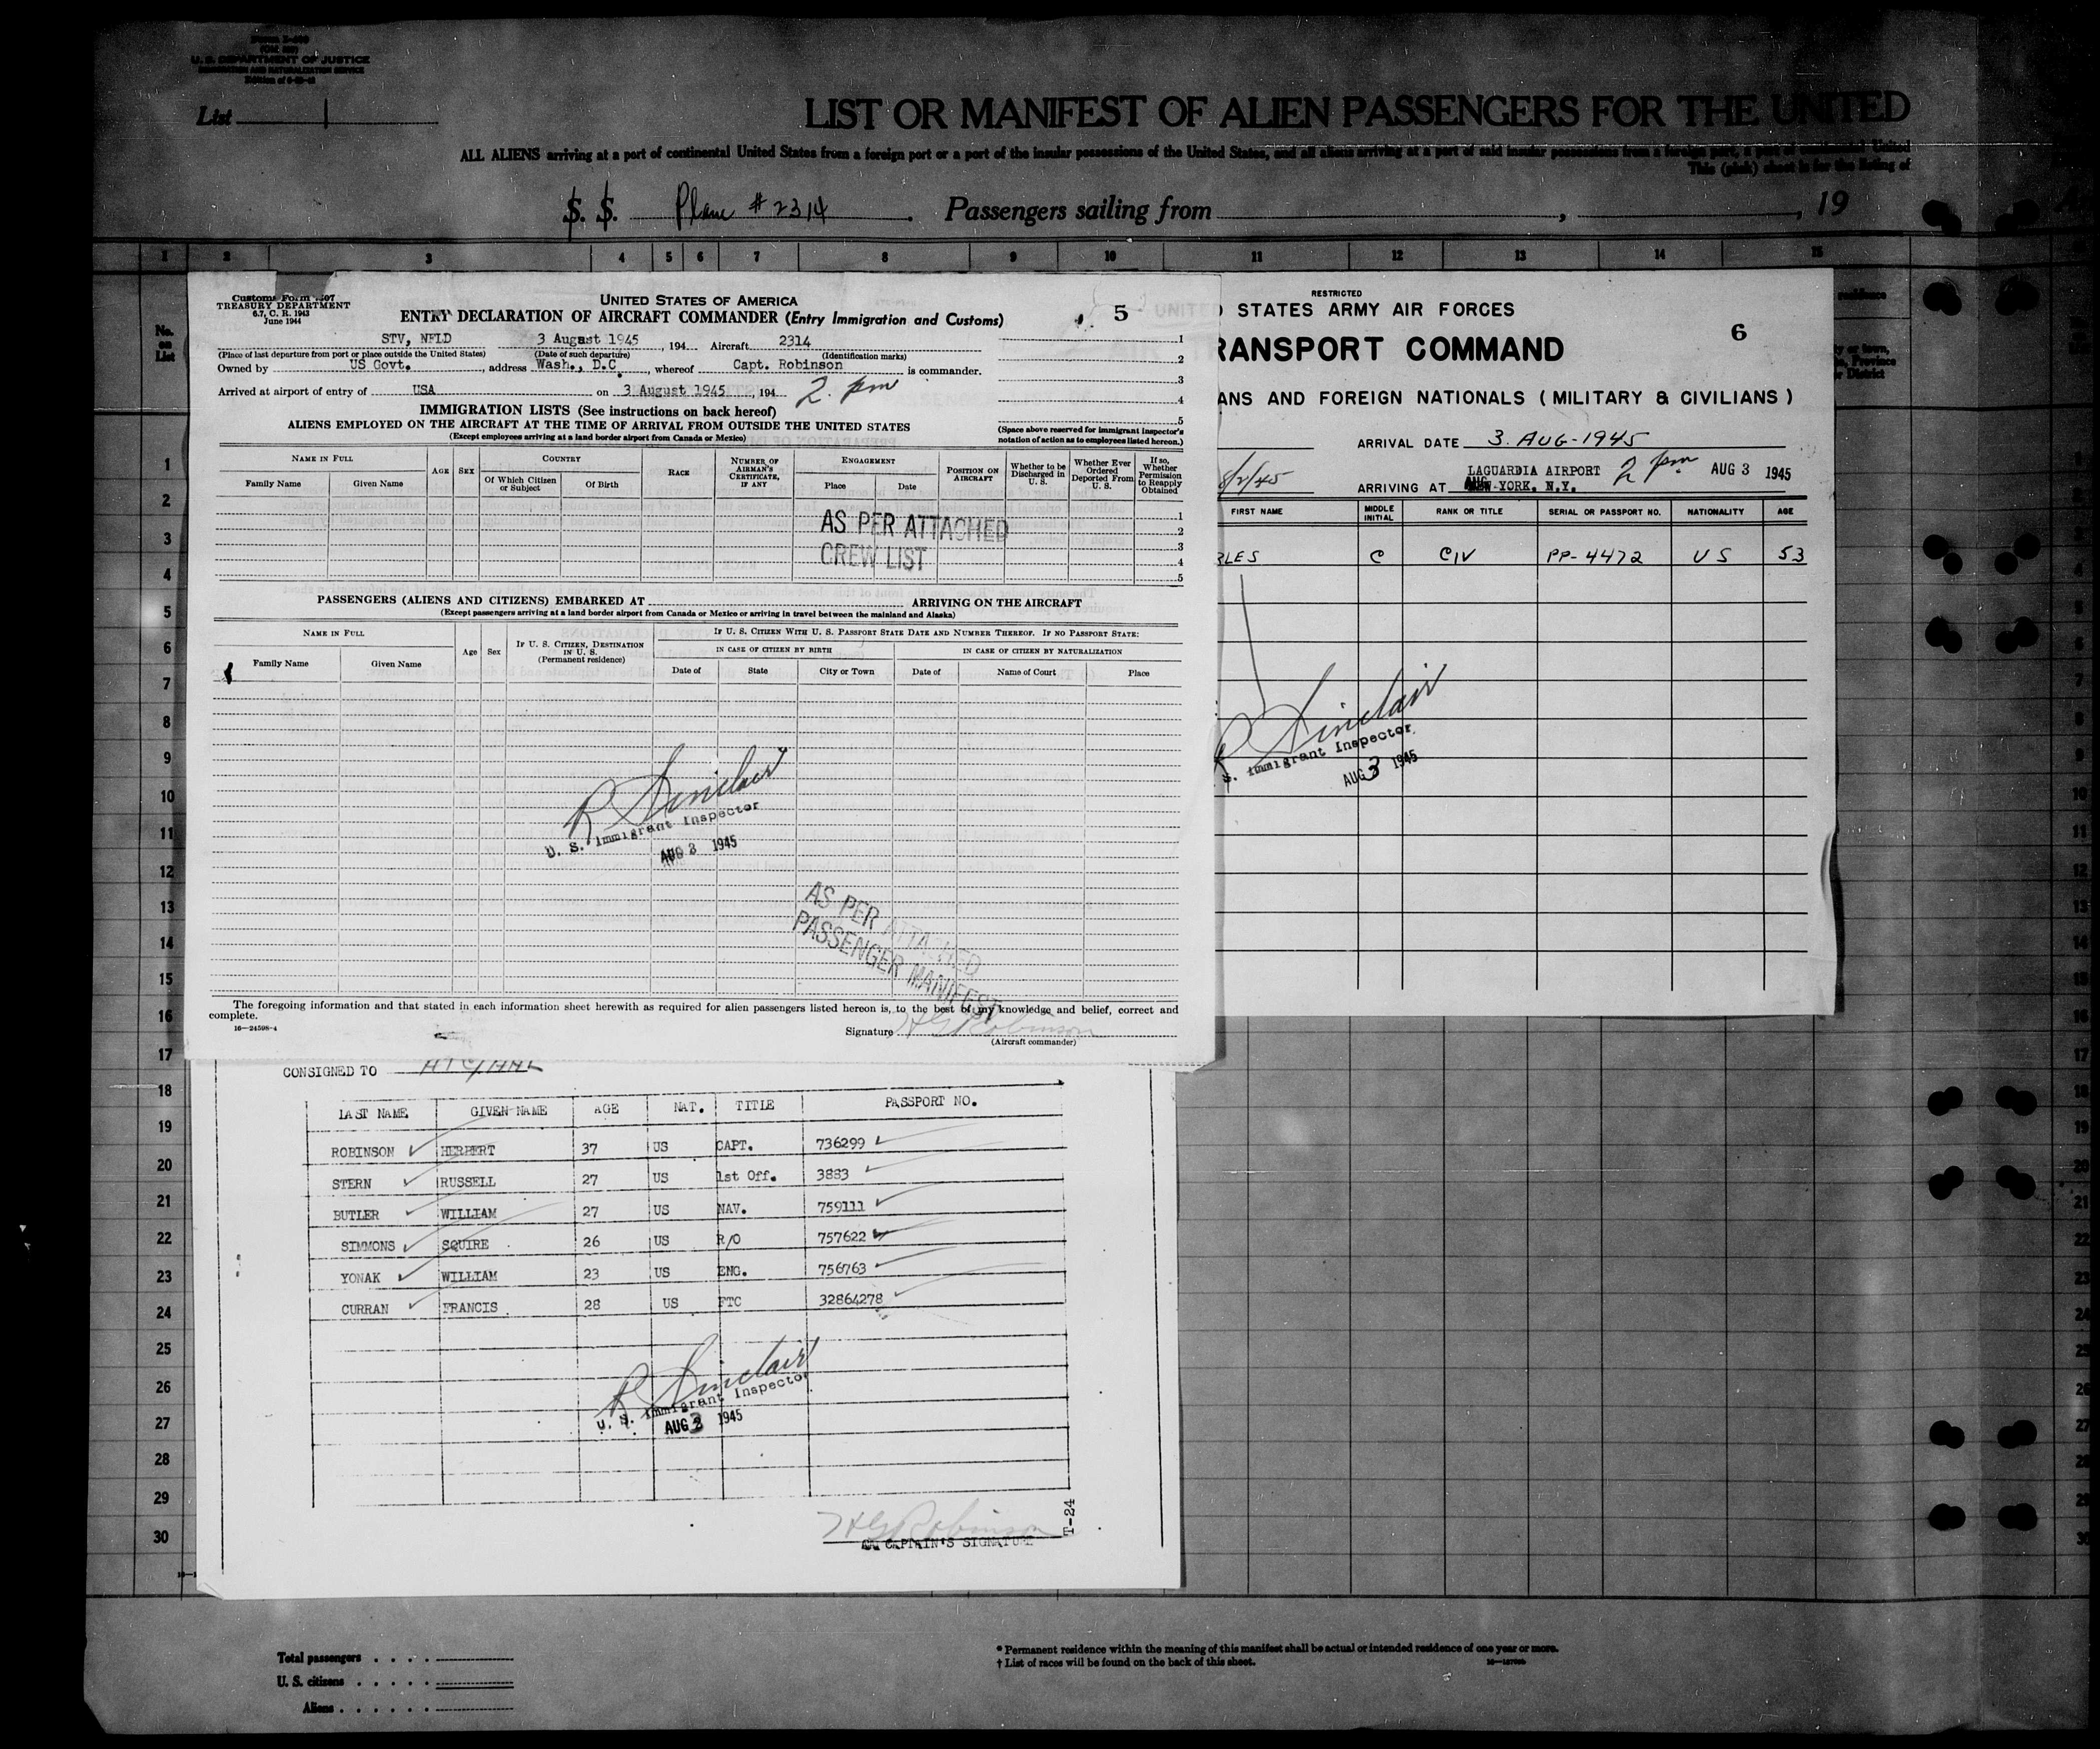 U. S. DEPARTMENT OF JUSTICE
IMMIGRATION AND NATURALIZATION SERVICE
List 1
LIST OR MANIFEST OF ALIEN PASSENGERS FOR THE UNITED
ALL ALIENS arriving at a port of continental United States from a foreign port or a port of the insular possessions of the United States, and all aliens arriving at a port of said insular possessions from a foreign port, a port of continental United
This (pink) sheet is for the listing of
S. S. Plane # 2314 . Passengers sailing from , , 19
1 2 3 4 5 6 7 8 9 10 11 12 13 14 15
No. on List
Customs Form 7507
TREASURY DEPARTMENT
6.7, C. R. 1943
June 1944
UNITED STATES OF AMERICA
ENTRY DECLARATION OF AIRCRAFT COMMANDER (Entry Immigration and Customs)
5
STV, NFLD 3 August 1945 , 194 Aircraft 2314
(Place of last departure from port or place outside the United States) (Date of such departure) (Identification marks)
Owned by US Govt. , address Wash., D.C. , whereof Capt. Robinson is commander.
Arrived at airport of entry of USA on 3 August 1945 , 194 2. pm
1
2
3
4
5
(Space above reserved for immigrant inspector's notation of action as to employees listed hereon.)
IMMIGRATION LISTS (See instructions on back hereof)
ALIENS EMPLOYED ON THE AIRCRAFT AT THE TIME OF ARRIVAL FROM OUTSIDE THE UNITED STATES
(Except employees arriving at a land border airport from Canada or Mexico)
NAME IN FULL AGE SEX COUNTRY RACE NUMBER OF AIRMAN'S CERTIFICATE, IF ANY ENGAGEMENT POSITION ON AIRCRAFT Whether to be Discharged in U. S. Whether Ever Ordered Deported From U. S. If so, Whether Permission to Reapply Obtained
Family Name Given Name Of Which Citizen or Subject Of Birth Place Date
1
2
3
4
5
AS PER ATTACHED
CREW LIST
PASSENGERS (ALIENS AND CITIZENS) EMBARKED AT ARRIVING ON THE AIRCRAFT
(Except passengers arriving at a land border airport from Canada or Mexico or arriving in travel between the mainland and Alaska)
NAME IN FULL Age Sex IF U. S. CITIZEN, DESTINATION IN U. S. (Permanent residence) IF U. S. CITIZEN WITH U. S. PASSPORT STATE DATE AND NUMBER THEREOF. IF NO PASSPORT STATE:
IN CASE OF CITIZEN BY BIRTH IN CASE OF CITIZEN BY NATURALIZATION
Family Name Given Name Date of State City or Town Date of Name of Court Place
R Sinclair
U. S. Immigrant Inspector
AUG 3 1945
AS PER ATTACHED
PASSENGER MANIFEST
The foregoing information and that stated in each information sheet herewith as required for alien passengers listed hereon is, to the best of my knowledge and belief, correct and
complete.
16—24598-4
Signature HG Robinson
(Aircraft commander)
RESTRICTED
UNITED STATES ARMY AIR FORCES
6
TRANSPORT COMMAND
ANS AND FOREIGN NATIONALS ( MILITARY & CIVILIANS )
ARRIVAL DATE 3. AUG-1945
8/2/45
LAGUARDIA AIRPORT 2 pm AUG 3 1945
ARRIVING AT NEW YORK. N.Y.
FIRST NAME MIDDLE INITIAL RANK OR TITLE SERIAL OR PASSPORT NO. NATIONALITY AGE
RLES C CIV PP-4472 US 53
R Sinclair
S. Immigrant Inspector
AUG 3 1945
CONSIGNED TO ATC/AAL
LAST NAME GIVEN NAME AGE NAT. TITLE PASSPORT NO.
ROBINSON HERBERT 37 US CAPT. 736299
STERN RUSSELL 27 US 1st Off. 3883
BUTLER WILLIAM 27 US NAV. 759111
SIMMONS SQUIRE 26 US R/O 757622
YONAK WILLIAM 23 US ENG. 756763
CURRAN FRANCIS 28 US FTC 32864278
R Sinclair
U. S. Immigrant Inspector
AUG 3 1945
HG Robinson
CAPTAIN'S SIGNATURE
T-24
1
2
3
4
5
6
7
8
9
10
11
12
13
14
15
16
17
18
19
20
21
22
23
24
25
26
27
28
29
30
Total passengers
U. S. citizens
Aliens
* Permanent residence within the meaning of this manifest shall be actual or intended residence of one year or more.
† List of races will be found on the back of this sheet.